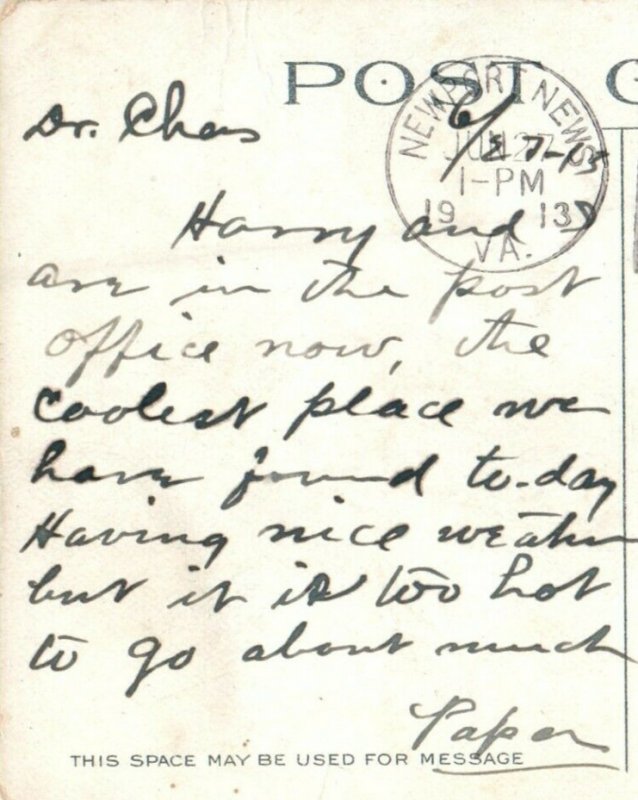 POST C
NEWPORT NEWS
JUN 27
1-PM
19 13
VA.
6/27-13
Dr. Chas
Harry and I
are in the post
office now, the
coolest place we
have found to-day
Having nice weather
but it is too hot
to go about much
Papa
THIS SPACE MAY BE USED FOR MESSAGE